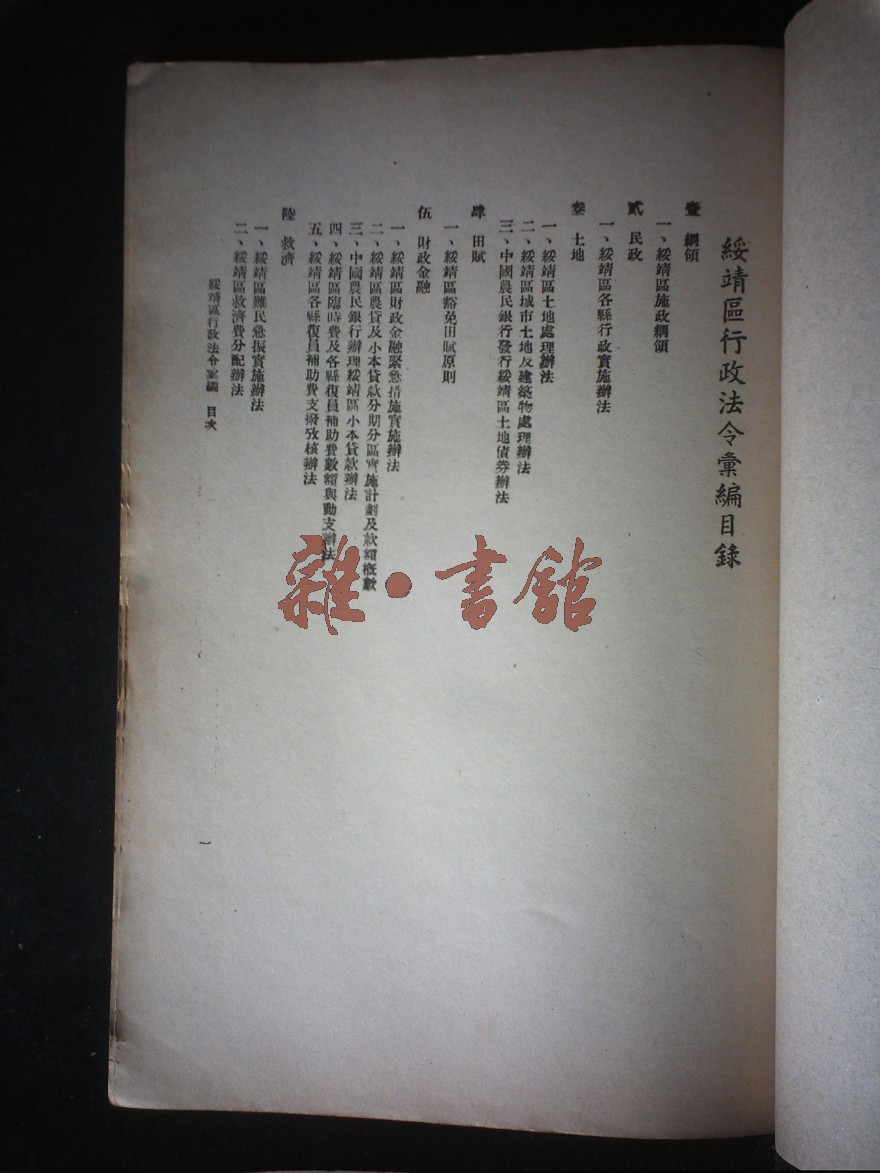 綏靖區行政法令彙編目錄
壹 綱領
一、綏靖區施政綱領
貳 民政
一、綏靖區各縣行政實施辦法
叁 土地
一、綏靖區土地處理辦法
二、綏靖區城市土地及建築物處理辦法
三、中國農民銀行發行綏靖區土地債券辦法
肆 田賦
一、綏靖區豁免田賦原則
伍 財政金融
一、綏靖區財政金融緊急措施實施辦法
二、綏靖區農貸及小本貸款分期分區實施計劃及款額概數
三、中國農民銀行辦理綏靖區小本貸款辦法
四、綏靖區臨時費及各縣復員補助費數額與動支辦法
五、綏靖區各縣復員補助費支撥攷核辦法
陸 救濟
一、綏靖區難民急振實施辦法
二、綏靖區救濟費分配辦法
綏靖區行政法令彙編 目次
一
雜·書館